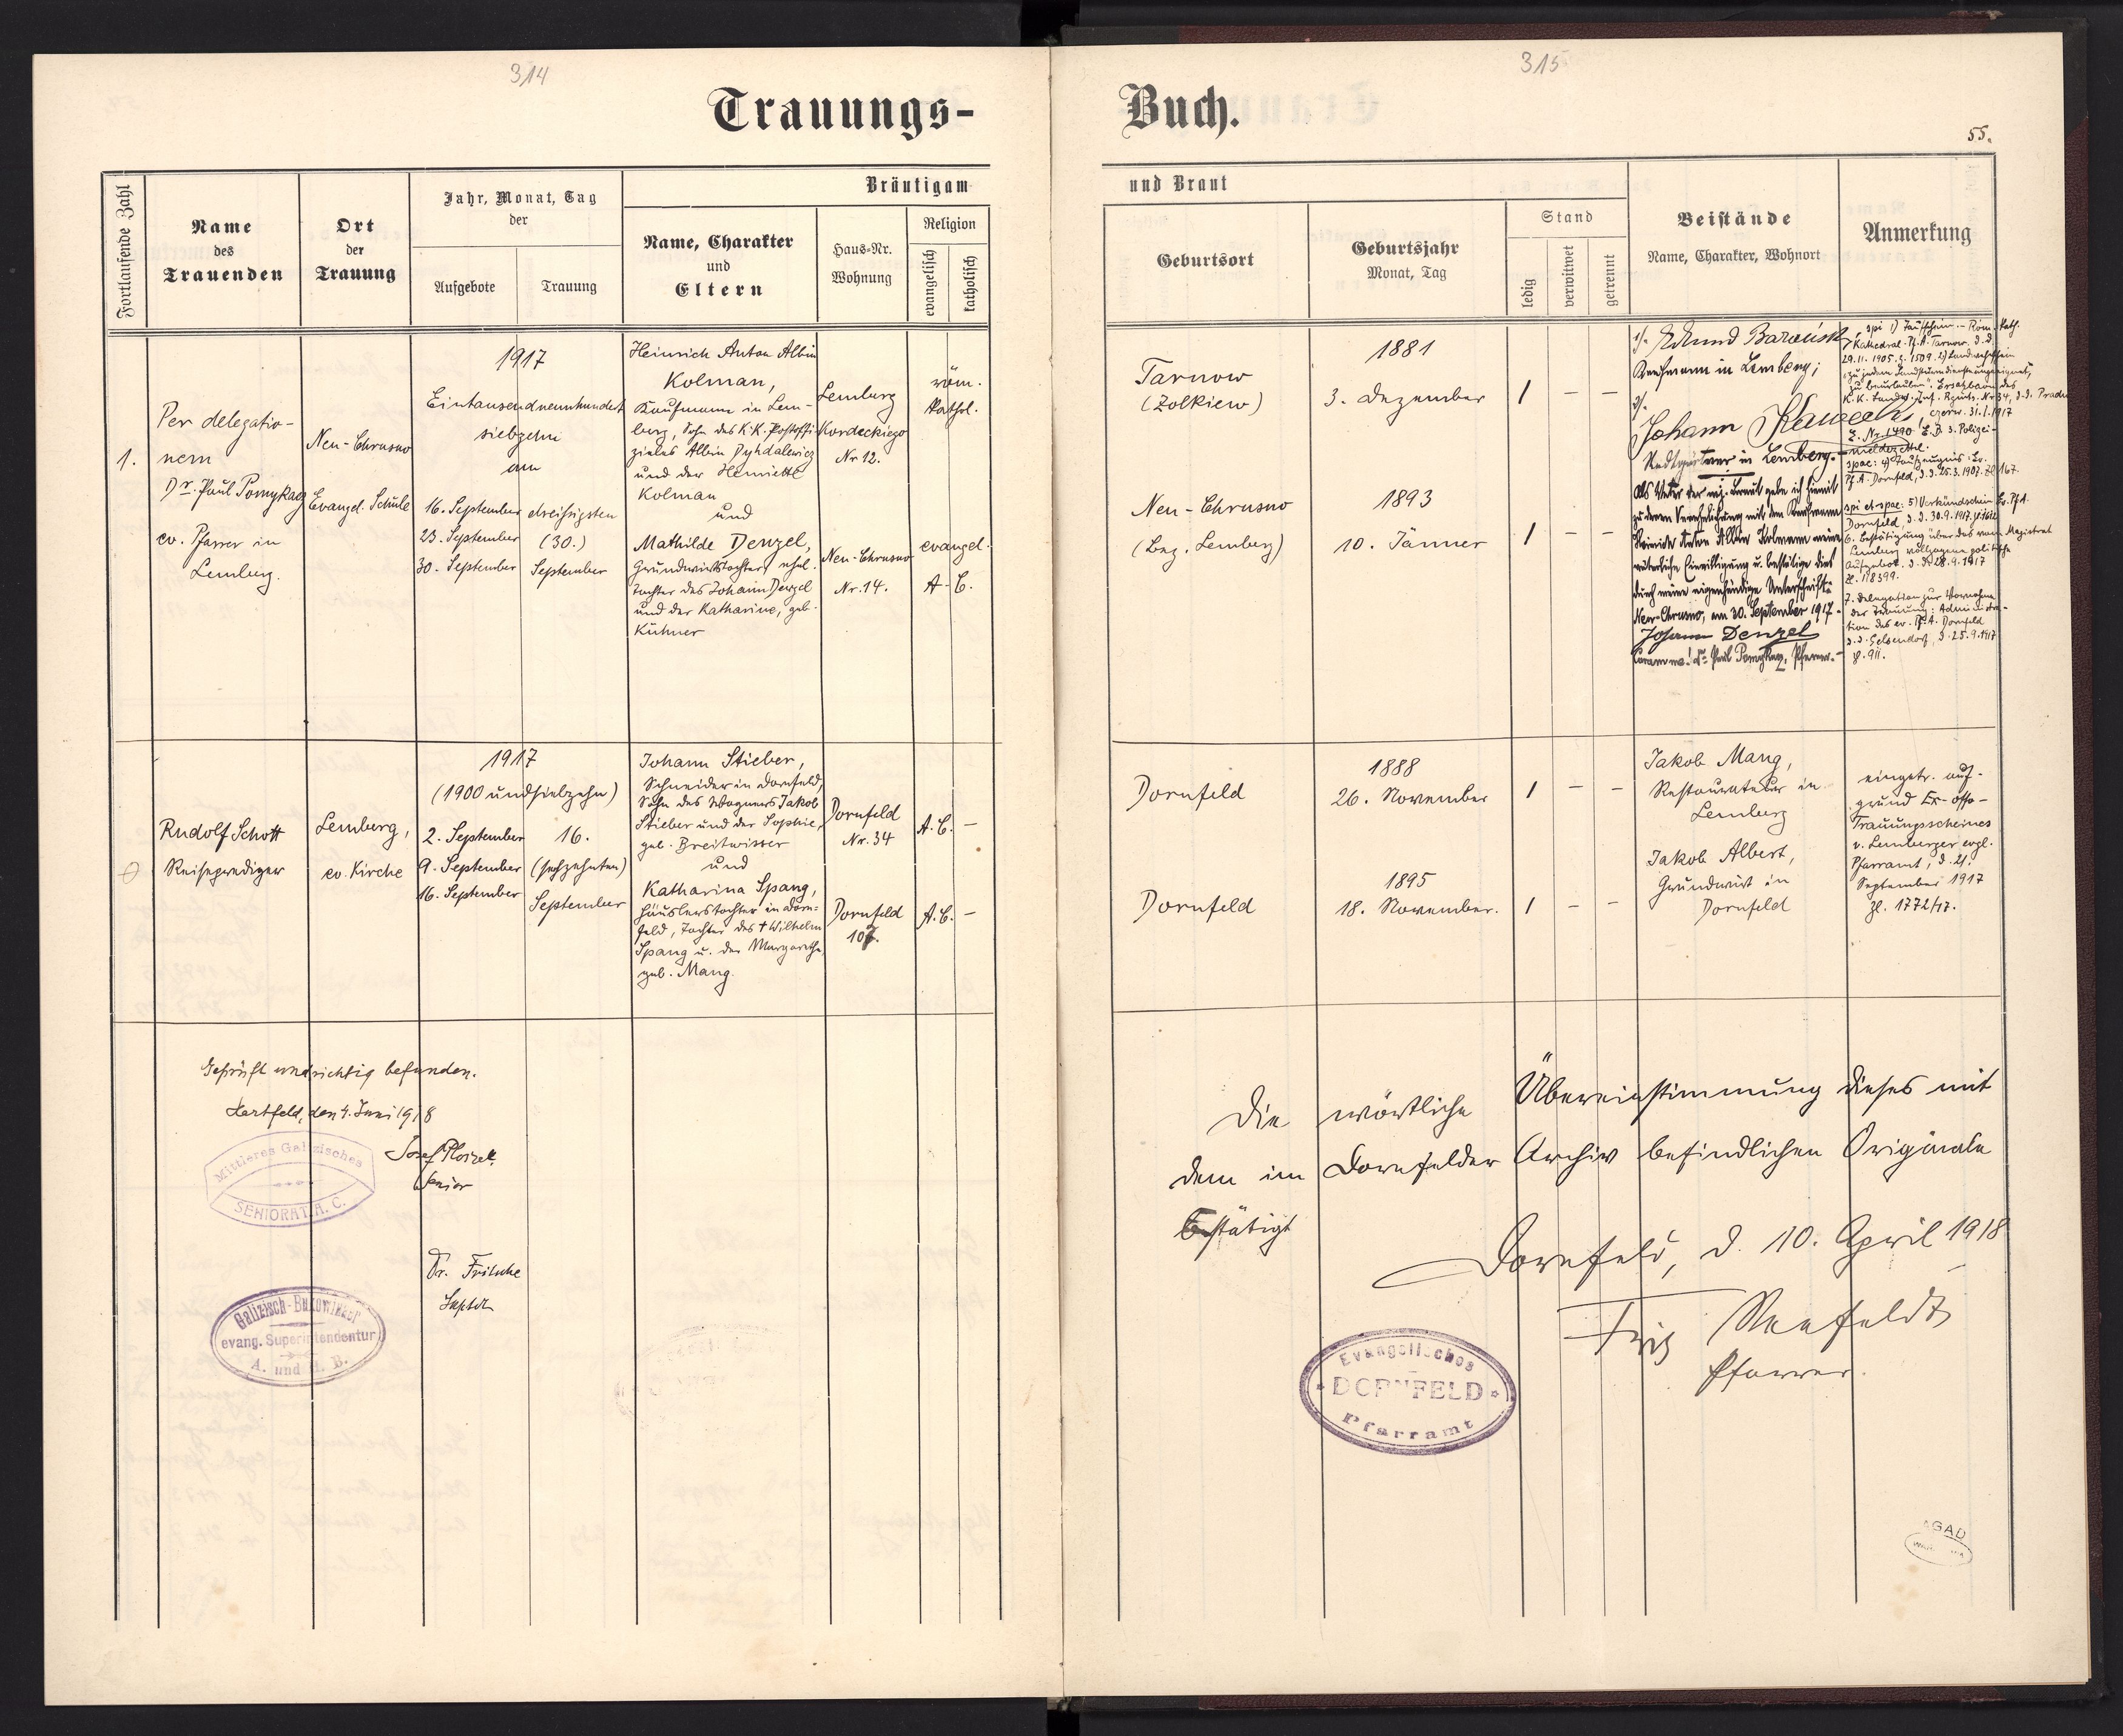 314
Trauungs-
Fortlaufende Zahl
Name
des
Trauenden
Ort
der
Trauung
Jahr, Monat, Tag
der
Aufgebote
Trauung
Bräutigam
Name, Charakter
und
Eltern
Haus-Nr.
Wohnung
Religion
evangelisch
katholisch
1.
Per delegatio-
nem
Dr. Paul Pomykacz
ev. Pfarrer in
Lemberg.
Neu-Chrusno
Evangel. Schule
1917
Eintausendneunhundert
siebzehn
am
16. September
23. September
30. September
dreissigsten
(30.)
September
Heinrich Anton Albin
Kolman,
Kaufmann in Lem-
berg, Sohn des K.K. Postoffi-
zieles Albin Dyhdalewicz
und der Henriette
Kolman
und
Mathilde Denzel,
Grundwirtstochter, ehel.
Tochter des Johann Denzel
und der Katharine, geb.
Kühner
Lemberg
Kordeckiego
Nr 12.
Neu-Chrusno
Nr. 14.
röm.
kathol.
evangel.
A. C.
Rudolf Schott
Reiseprediger
Lemberg,
ev. Kirche
1917
(1900 und siebzehn)
2. September
9. September
16. September
16.
(sechzehnten)
September
Johann Stieber,
Schneider in Dornfeld,
Sohn des Wagners Jakob
Stieber und der Sophie,
geb. Breitwieser
und
Katharina Spang,
Häuslerstochter in Dorn-
feld, Tochter des † Wilhelm
Spang u. der Margarethe,
geb. Mang.
Dornfeld
Nr. 34
Dornfeld
107.
A. C. –
A. C. –
Geprüft und richtig befunden.
Hartfeld, den 4. Juni 1918
Mittleres Galizisches
SENIORAT A. C.
Josef Ploszek
Senior
Dr. Fritsche
Suptdt
Galizisch-Bukowiner
evang. Superintendentur
A. und H. B.
315
Buch.
55.
und Braut
Geburtsort
Geburtsjahr
Monat, Tag
Stand
ledig
verwitwet
getrennt
Beistände
Name, Charakter, Wohnort
Anmerkung
Tarnow
(Zolkiew)
1881
3. Dezember
1 – –
Neu-Chrusno
(Bez. Lemberg)
1893
10. Jänner
1 – –
1). Edmund Baroński
Kaufmann in Lemberg;
2).
Johann Kawecki,
Stadtgärtner in Lemberg.
Als Vater der mj. Braut gebe ich hiemit
zu deren Verehelichung mit dem Kaufmann
Heinrich Anton Albin Kolmann meine
väterliche Einwilligung u. bestätige dies
durch meine eigenhändige Unterschrift:
Neu-Chrusno, am 30. September 1917.
Johann Denzel
Coram me: Dr. Paul Pomykacz, Pfarrer.
spi 1) Taufschein. – Röm. kath.
Kathedral-Pf. A. Tarnow, d.d.
29.11.1905. z. 1509. 2) Landsturmschein
„zu jedem Landsturmdienste ungeeignet,
zu beurlauben". Ersatzbaon des
K.K. Landw. Inf. Rgmts. Nr 34, d.d.
31.1.1917
Z. Nr. 1490 3. Polizei-
meldezettel.
spae: 4) Taufzeugnis: Ev.
Pf. A. Dornfeld, d.d. 25.3.1907. Zl 167.
spi et spae: 5) Verkündschein Ev. Pf. A.
Dornfeld, d.d. 30.9.1917.
6. Bestätigung über das vom Magistrat
Lemberg vollzogene politische
Aufgebot. d.d. 28.9.1917
Zl. 118399.
7. Delegation zur Vornahme
der Trauung: Administra-
tion des ev. Pf. A. Dornfeld
d.d. Gelsendorf, d. 25.9.1917
Z. 911.
Dornfeld
1888
26. November
1 – –
Dornfeld
1895
18. November.
1 – –
Jakob Mang,
Restaurateur in
Lemberg
Jakob Albert,
Grundwirt in
Dornfeld
eingetr. auf-
grund Ex-offo-
Trauungsscheines
v. Lemberger evgl.
Pfarramt, d. 21.
September 1917
Zl. 1772/17.
Die wörtliche Übereinstimmung dieses mit
dem im Dornfelder Archiv befindlichen Originale
bestätigt
Dornfeld, d. 10. April 1918
Fritz Neufeldt
Pfarrer.
Evangelisches
DORNFELD
Pfarramt
AGAD
WARSZAWA